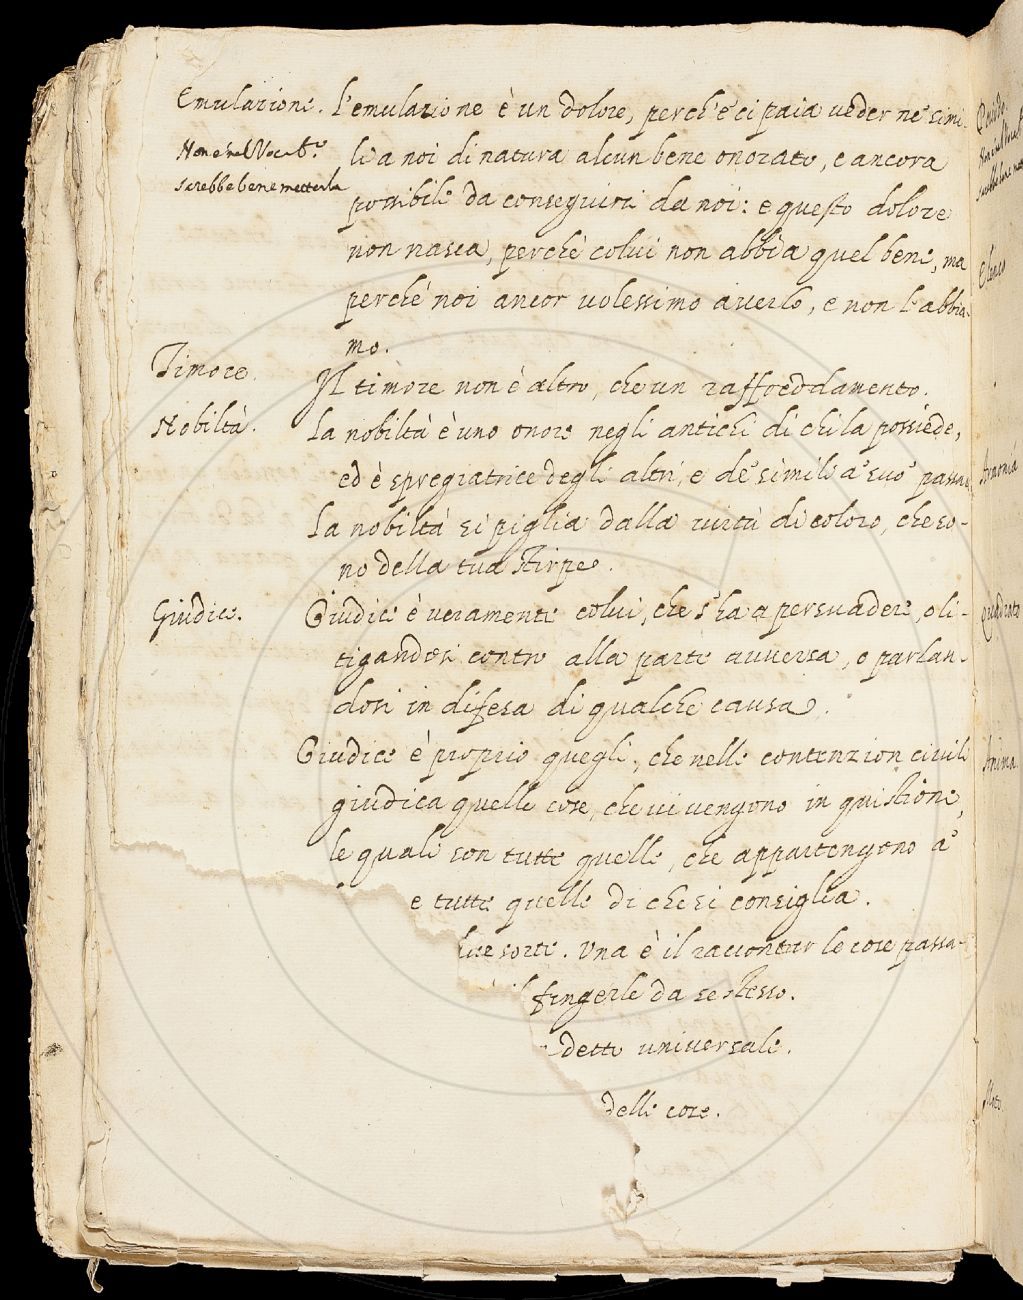 Emulazione. L'emulazione è un dolore, perch'e' ci paia veder ne' simi-
Non è nel Vocab.º li a noi di natura alcun bene onorato, e ancora
sarebbe bene metterla possibile da conseguirsi da noi: e questo dolore
non nasca, perchè colui non abbia quel bene, ma
perchè noi ancor volessimo averlo, e non l'abbia-
mo.
Timore. Il timore non è altro, che un raffreddamento.
Nobiltà. La nobiltà è uno onore negli antichi di chi la possiede,
ed è spregiatrice degli altri, e de' simili a' suo' passati.
La nobiltà si piglia dalla virtù di coloro, che so-
no della tua stirpe.
Giudice. Giudice è veramente colui, che s'ha a persuadere, o li-
tigandosi contro alla parte avversa, o parlan-
dosi in difesa di qualche causa.
Giudice è proprio quegli, che nelle contenzion civili
giudica quelle cose, che vi vengono in quistione,
le quali son tutte quelle, che appartengono a'
e tutte quelle di che si consiglia.
due sorte. Una è il raccontar le cose passa-
il fingerle da se stesso.
detto universale.
delle cose.
Elenco
Quadrato
Anima.